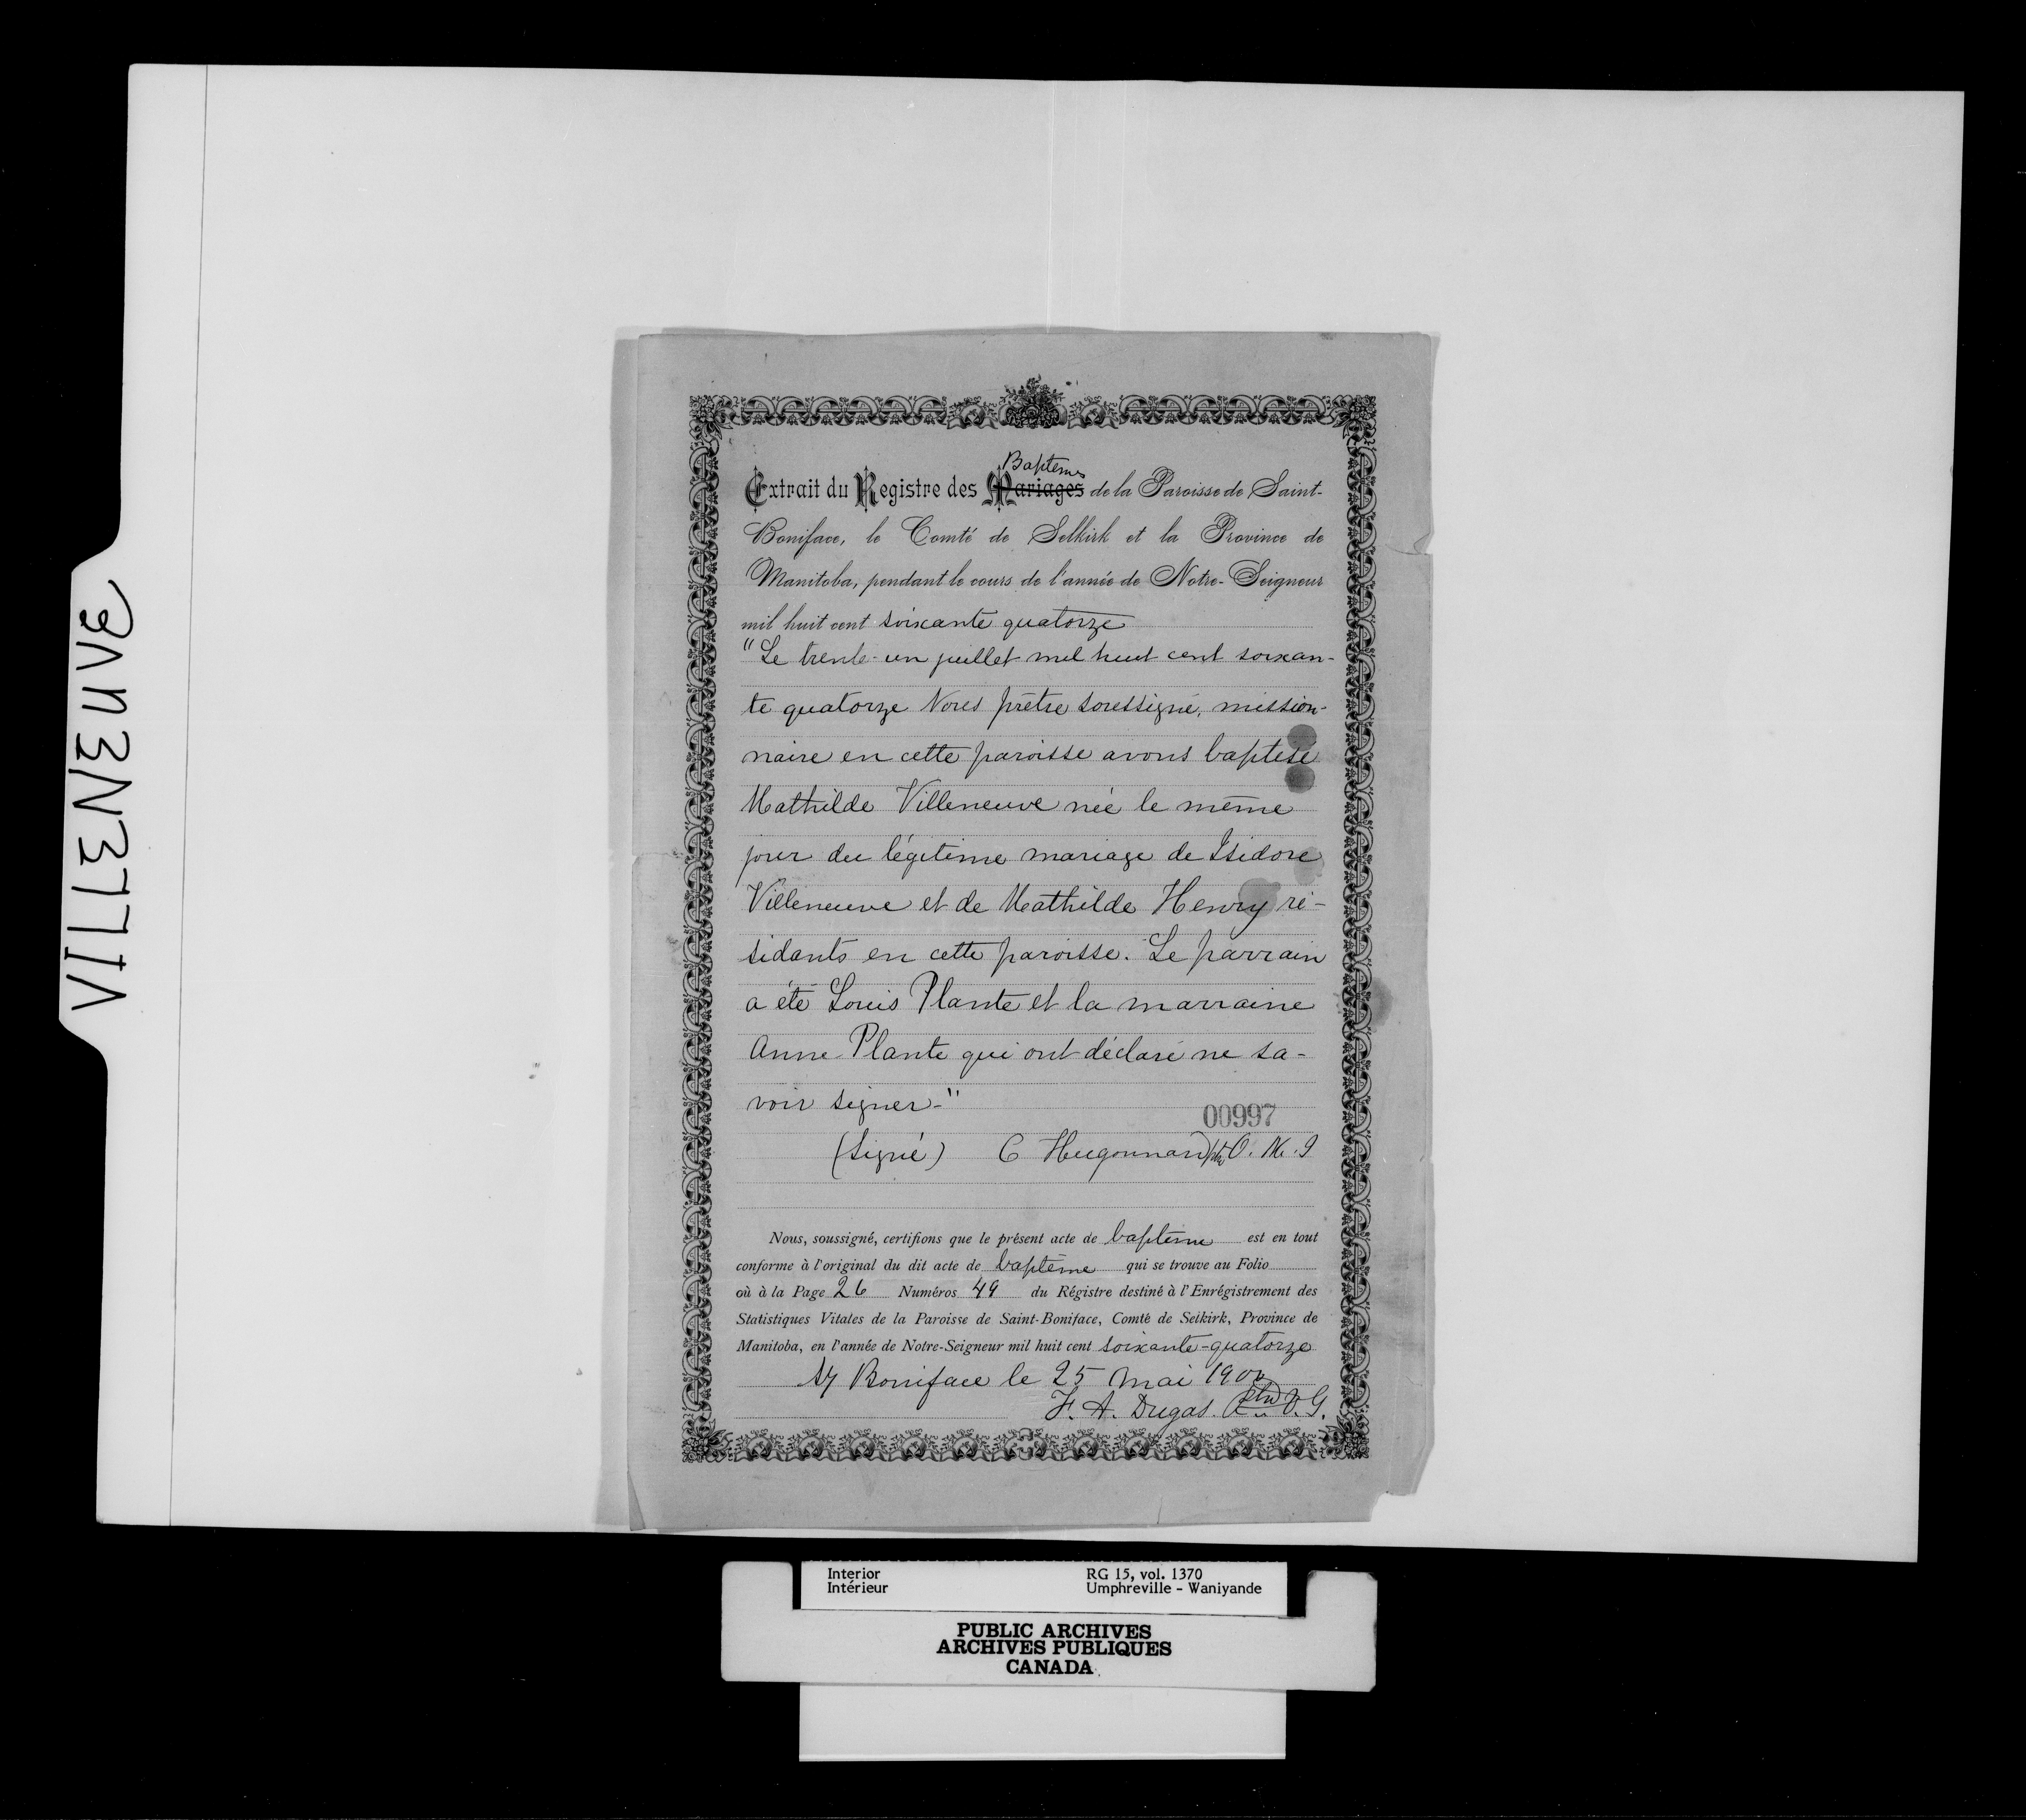 VILLENEUVE
Baptemes
Extrait du Registre des Mariages de la Paroisse de Saint-
Boniface, le Comté de Selkirk et la Province de
Manitoba, pendant le cours de l'année de Notre-Seigneur
mil huit cent soixante quatorze
"Le trente-un juillet mil huit cent soixan-
te quatorze Nous prêtre soussigné, mission-
naire en cette paroisse avons baptisé
Mathilde Villeneuve née le même
jour du légitime mariage de Isidore
Villeneuve et de Mathilde Henry ré-
sidants en cette paroisse. Le parrain
a été Louis Plante et la marraine
Anne Plante qui ont déclaré ne sa-
voir signer-"
00997
(Signé) C Hugonnard ptre O. M. I
Nous, soussigné, certifions que le présent acte de baptême est en tout
conforme à l'original du dit acte de baptême qui se trouve au Folio
où à la Page 26 Numéros 49 du Régistre destiné à l'Enrégistrement des
Statistiques Vitales de la Paroisse de Saint-Boniface, Comté de Selkirk, Province de
Manitoba, en l'année de Notre-Seigneur mil huit cent soixante-quatorze
St Boniface le 25 Mai 1900
F. A. Dugas. Ptre V. G.
Interior RG 15, vol. 1370
Intérieur Umphreville - Waniyande
PUBLIC ARCHIVES
ARCHIVES PUBLIQUES
CANADA